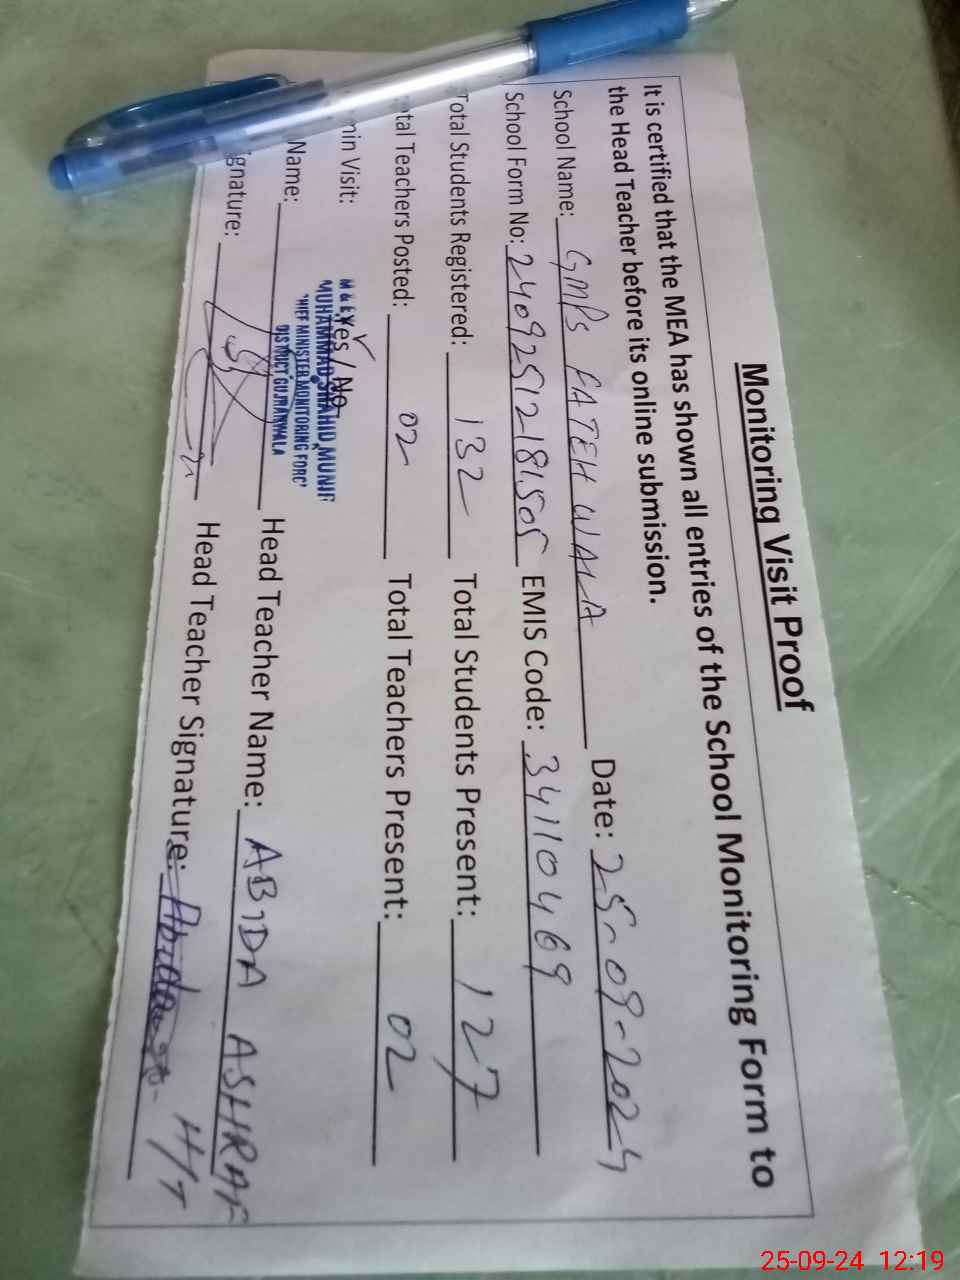 Monitoring Visit Proof
It is certified that the MEA has shown all entries of the School Monitoring Form to
the Head Teacher before its online submission.
School Name: GMPS FATEH WALA Date: 25-09-2024
School Form No: EMIS Code: 34110469
Total Students Registered: 132 Total Students Present: 127
tal Teachers Posted: 02 Total Teachers Present: 02
min Visit: Yes / No
M & E
MUHAMMAD SHAHID MUNIR
CHIEF MINISTER MONITORING FORC
DISTRICT GUJRANWALA
Name: Head Teacher Name: ABIDA ASHRAF
ignature: Head Teacher Signature: H/T
25-09-24 12:19